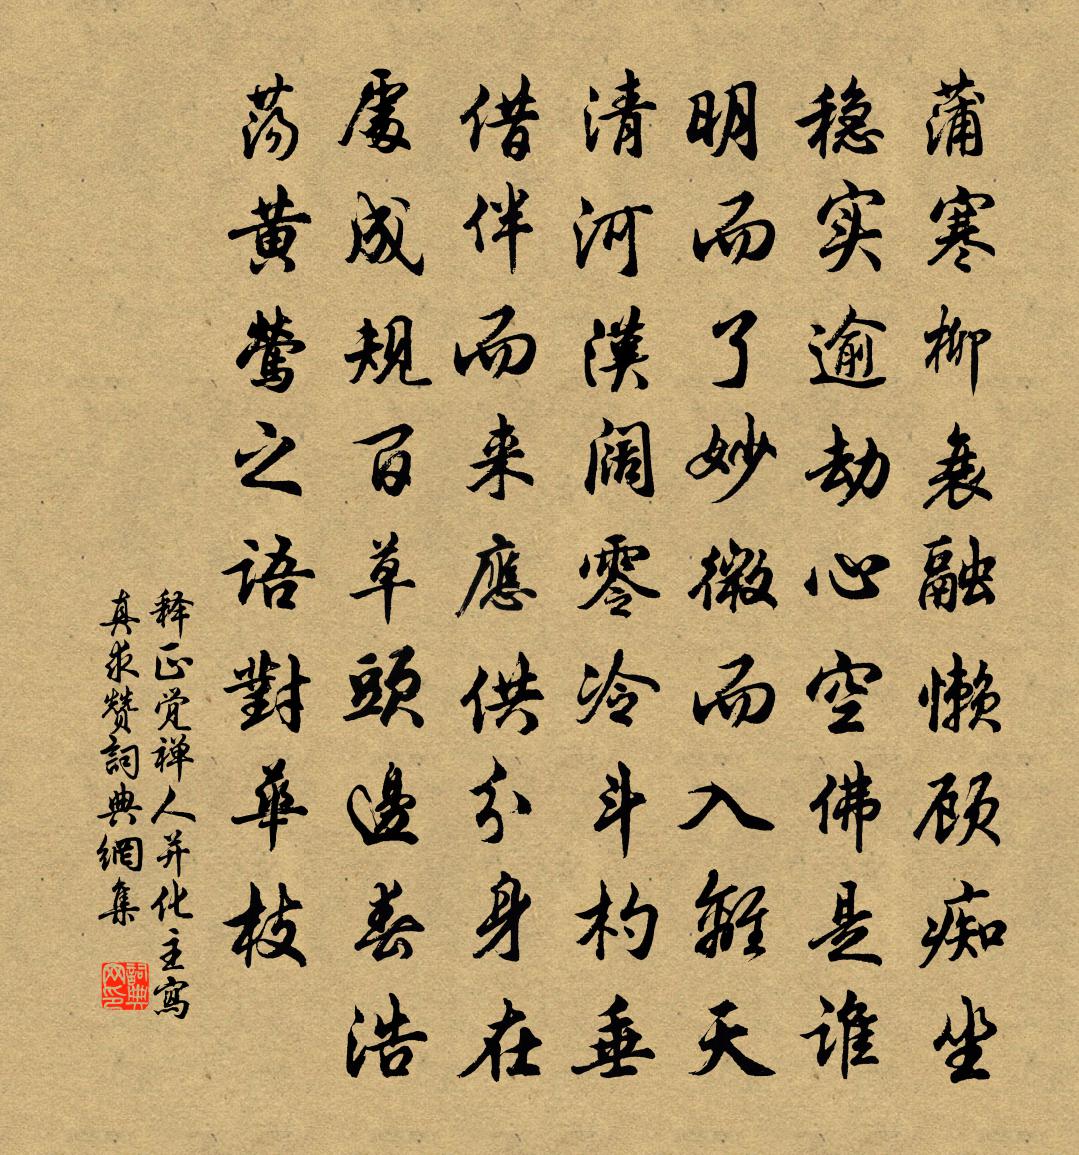 蒲寒柳衰融懒顾痴坐
稳实逾劫心空佛是谁
明而了妙微而入離天
清河漢阔零冷斗杓垂
借伴而来應供分身在
處成規百草頭邊春浩
荡黄鶯之語對華枝
释正觉禅人并化主寫
真求赞詞典網集
詞典网印